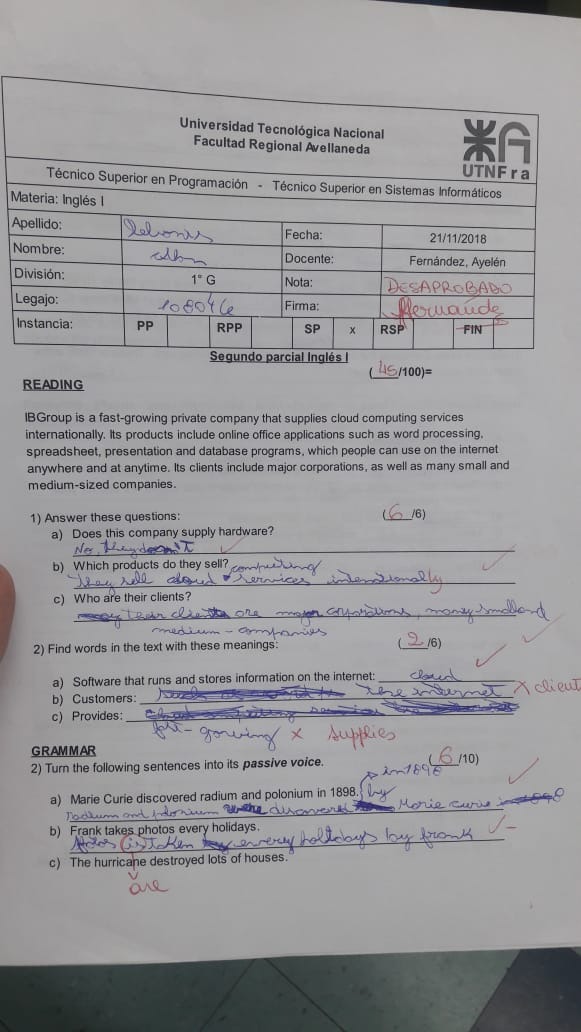 Universidad Tecnológica Nacional
Facultad Regional Avellaneda
UTNFra
Técnico Superior en Programación - Técnico Superior en Sistemas Informáticos
Materia: Inglés I
Apellido:
Fecha: 21/11/2018
Nombre:
Docente: Fernández, Ayelén
División: 1° G
Nota: DESAPROBADO
Legajo:
Firma:
Instancia: PP RPP SP x RSP FIN
Segundo parcial Inglés I
(45/100)=
READING
IBGroup is a fast-growing private company that supplies cloud computing services
internationally. Its products include online office applications such as word processing,
spreadsheet, presentation and database programs, which people can use on the internet
anywhere and at anytime. Its clients include major corporations, as well as many small and
medium-sized companies.
1) Answer these questions: (6/6)
a) Does this company supply hardware?
No, they doesn't
b) Which products do they sell?
They sell cloud computing services intenationally
c) Who are their clients?
clients are major corporations, many small and
medium - companies
2) Find words in the text with these meanings: (2/6)
a) Software that runs and stores information on the internet: cloud
b) Customers: the internet X client
c) Provides: fast-gorwing X supplies
GRAMMAR (6/10)
2) Turn the following sentences into its passive voice.
a) Marie Curie discovered radium and polonium in 1898.
radium and polonium discovered by Marie curie in 1898
b) Frank takes photos every holidays.
is taken every holidays by frank
are
c) The hurricane destroyed lots of houses.